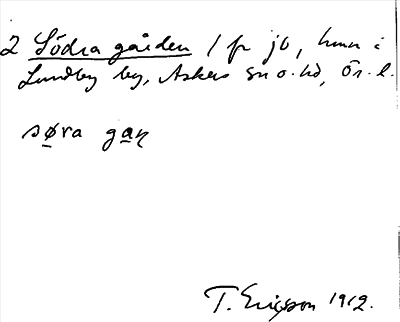 2 Södra gården 1 fr jb, hmn i
Lundby by, Askers sn o. hd, Ör. l.
søra gaɳ
T. Ericsson 1912.